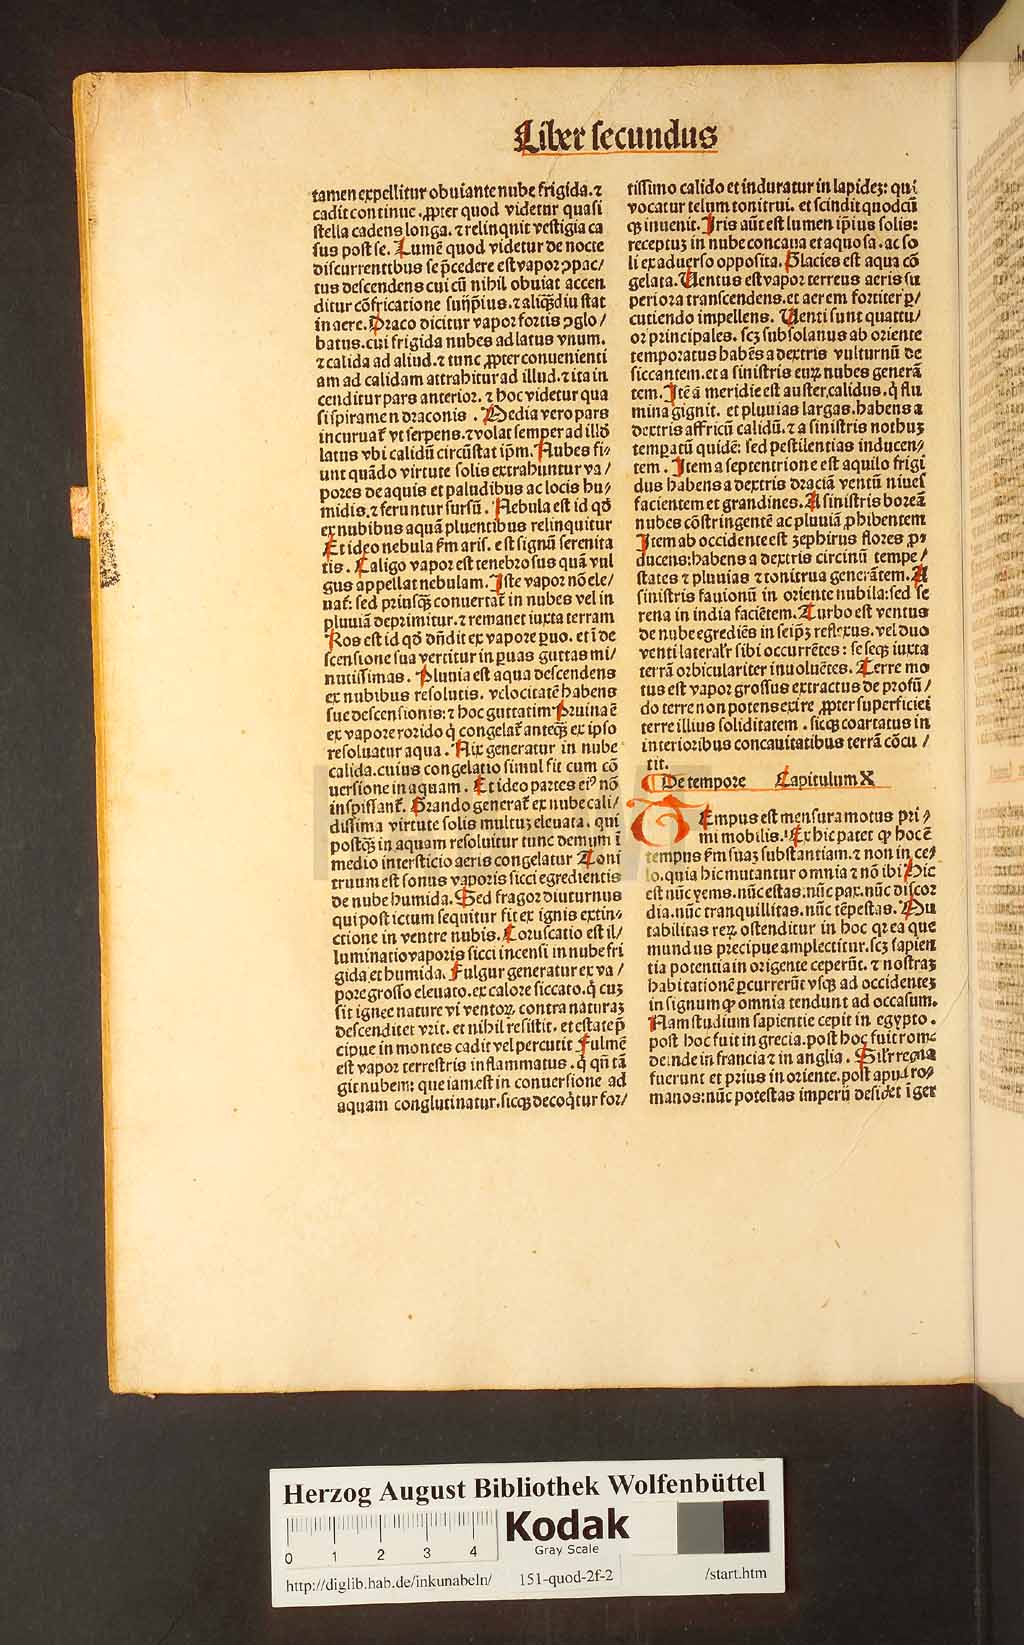 Liber secundus
tamen expellitur obuiante nube frigida. ⁊
cadit continue. ꝓpter quod videtur quasi
stella cadens longa. ⁊ relinqnit vestigia ca
sus post se. Lumē quod videtur de nocte
discurrentibus se p̄cedere est vapor ↄpac/
tus descendens cui cū nihil obuiat accen
ditur cōfricatione sui ip̄ius. ⁊ aliqͣdiu stat
in aere. Draco dicitur vapor fortis ↄglo/
batus. cui frigida nubes ad latus vnum.
⁊ calida ad aliud. ⁊ tunc ꝓpter conuenienti
am ad calidam attrahitur ad illud. ⁊ ita in
cenditur pars anterior. ⁊ hoc videtur qua
si spiramen draconis . Media vero pars
incuruat̄ vt serpens. ⁊ volat semper ad illd̄
latus vbi calidū circūstat ip̄m. Nubes fi-
unt quādo virtute solis extrahuntur va/
pores de aquis et paludibus ac locis hu/
midis. ⁊ feruntur sursū. Nebula est id qd̄
ex nubibus aquā pluentibus relinquitur
Et ideo nebula k̄m aris. est signū serenita
tis . Caligo vapor est tenebrosus quā vul
gus appellat nebulam. Iste vapor nō ele/
uat̄: sed priusqͣ conuertat̄ in nubes vel in
pluuiā deprimitur. ⁊ remanet iuxta terram
Ros est id qd̄ dn̄dit ex vapore puo. et ī de
scensione sua vertitur in puas guttas mi/
nutissimas . Pluuia est aqua descendens
ex nubibus resolutis. velocitatē habens
sue descensionis: ⁊ hoc guttatim Pruina ē
ex vapore rorido q̇ congelat̄ anteqͣ ex ipso
resoluatur aqua . Nix generatur in nube
calida. cuius congelatio simul fit cum cō
uersione in aquam . Et ideo partes eiꝰ nō
inspissant̄. Grando generat̄ ex nube cali/
dissima virtute solis multuʒ eleuata. qui
postqͣ in aquam resoluitur tunc demum ī
medio intersticio aeris congelatur Toni
truum est sonus vaporis sicci egredientis
de nube humida. Sed fragor diuturnus
qui post ictum sequitur fit ex ignis extin-
ctione in ventre nubis. Coruscatio est il/
luminatio vaporis sicci incensi in nube fri
gida et humida. Fulgur generatur ex va /
pore grosso eleuato. ex calore siccato. q̇ cuʒ
sit ignee nature vi ventoꝝ. contra naturaʒ
descendit et vrit. et nihil resistit. et estate p̄
cipue in montes cadit vel percutit Fulmē
est vapor terrestris inflammatus . q̇ qn̄ tā
git nubem: que iam est in conuersione ad
aquam conglutinatur. sicqꝫ decoq̇tur for/
tissimo calido et induratur in lapideʒ: qui
vocatur telum tonitrui. et scindit quodcū
qꝫ inuenit. Iris aūt est lumen ip̄ius solis:
receptuʒ in nube concaua et aquosa. ac so
li ex aduerso opposita. Glacies est aqua cō
gelata. Uentus est vapor terreus aeris su
periora transcendens. et aerem fortiter ꝑ/
cutiendo impellens. Uenti sunt quattu/
or principales. scʒ subsolanus ab oriente
temporatus habēs a dextris vulturnū de
siccantem. et a sinistris euꝝ nubes generā
tem. Itē a meridie est auster. calidus. q̇ flu
mina gignit. et pluuias largas. habens a
dextris affricū calidū. ⁊ a sinistris nothuʒ
temꝑatū quidē: sed pestilentias inducen/
tem . Item a septentrione est aquilo frigi
dus habens a dextris draciā ventū niues
facientem et grandines. A sinistris boreā
nubes cōstringentē ac pluuiā ꝓhibentem
Item ab occidente est zephirus flores ꝓ-
ducens: habens a dextris circinū tempe/
states ⁊ pluuias ⁊ tonitrua generātem. A
sinistris fauionū in oriente nubila: sed se
rena in india faciētem. Turbo est ventus
de nube egrediēs in seip̄ʒ reflexus. vel duo
venti lateral'r sibi occurrētes : se seqꝫ iuxta
terrā orbiculariter inuoluētes. Terre mo
tus est vapor grossus extractus de profū/
do terre non potens exire ꝓpter superficiei
terre illius soliditatem . sicqꝫ coartatus in
interioribus concauitatibus terrā cōcu /
tit.
De tempore Capitulum X
TEmpus est mensura motus pri /
mi mobilis. Ex hic patet ꝙ hoc ē
tempus k̄m suaʒ substantiam. ⁊ non in ce/
lo. quia hic mutantur omnia ⁊ nō ibi Hic
est nūc yems. nūc estas. nūc pax. nūc discor
dia. nūc tranquillitas. nūc tēpestas. Mu
tabilitas reꝝ ostenditur in hoc qꝛ ea que
mundus precipue amplectitur. scʒ sapien
tia potentia in origente ceperūt. ⁊ nostraʒ
habitationē ꝑcurrerūt vsqꝫ ad occidenteʒ
in signum ꝙ omnia tendunt ad occasum.
Nam studium sapientie cepit in egypto .
post hoc fuit in grecia. post hoc fuit rome
deinde in francia ⁊ in anglia . Sil'r regna
fuerunt et prius in oriente. post apud ro/
manos: nūc potestas imperii desidet ī ger
Herzog August Bibliothek Wolfenbüttel
0 1 2 3 4
Kodak
Gray Scale
http://diglib.hab.de/inkunabeln/ 151-quod-2f-2 /start.htm